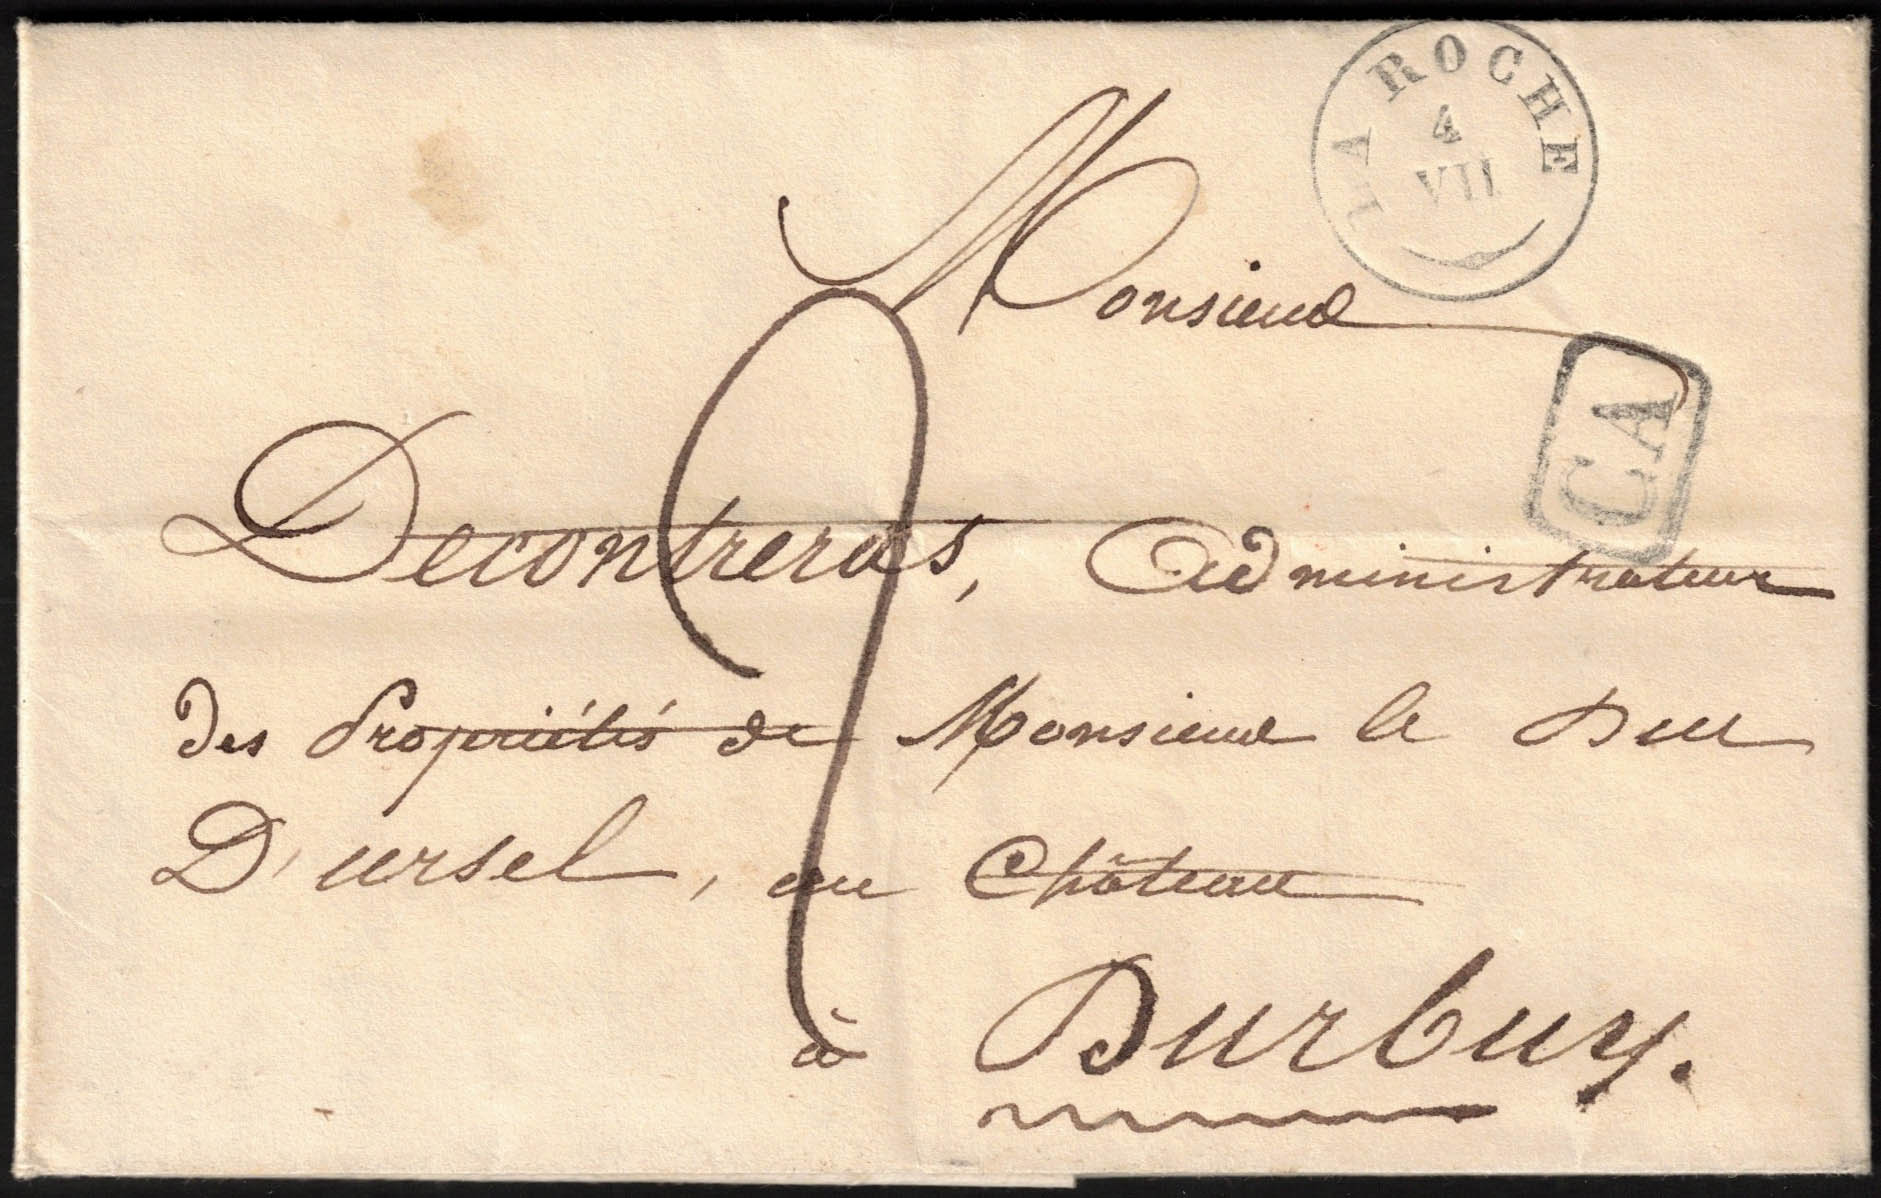 LA ROCHE
4
VII
Monsieur
CA
Decontreras, Administrateur
des Propriétés de Monsieur le Duc
D'ursel, au Château
à Durbuy.